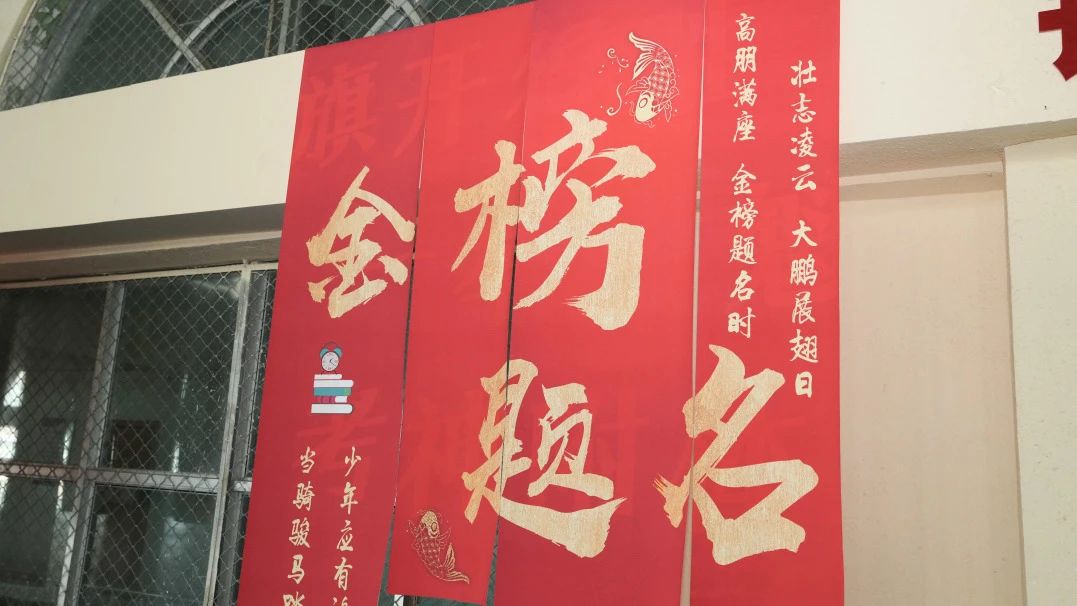 金榜
题名
壮志凌云 大鹏展翅日
高朋满座 金榜题名时
少年应有
当骑骏马
旗开